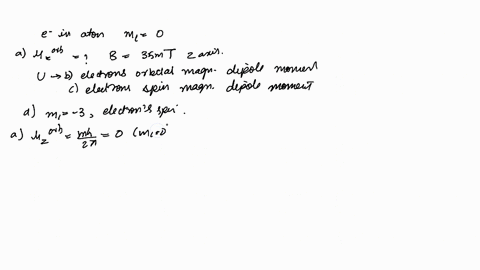 e⁻ in atom m_l = 0
a) μ_z^orb = ? B = 35mT z axis.
U → b) electrons orbital magn. dipole moment
c) electrons spin magn. dipole moment
d) m_l = -3, electron's spin.
a) μ_z^orb = mh/2π = 0 (m_l=0)